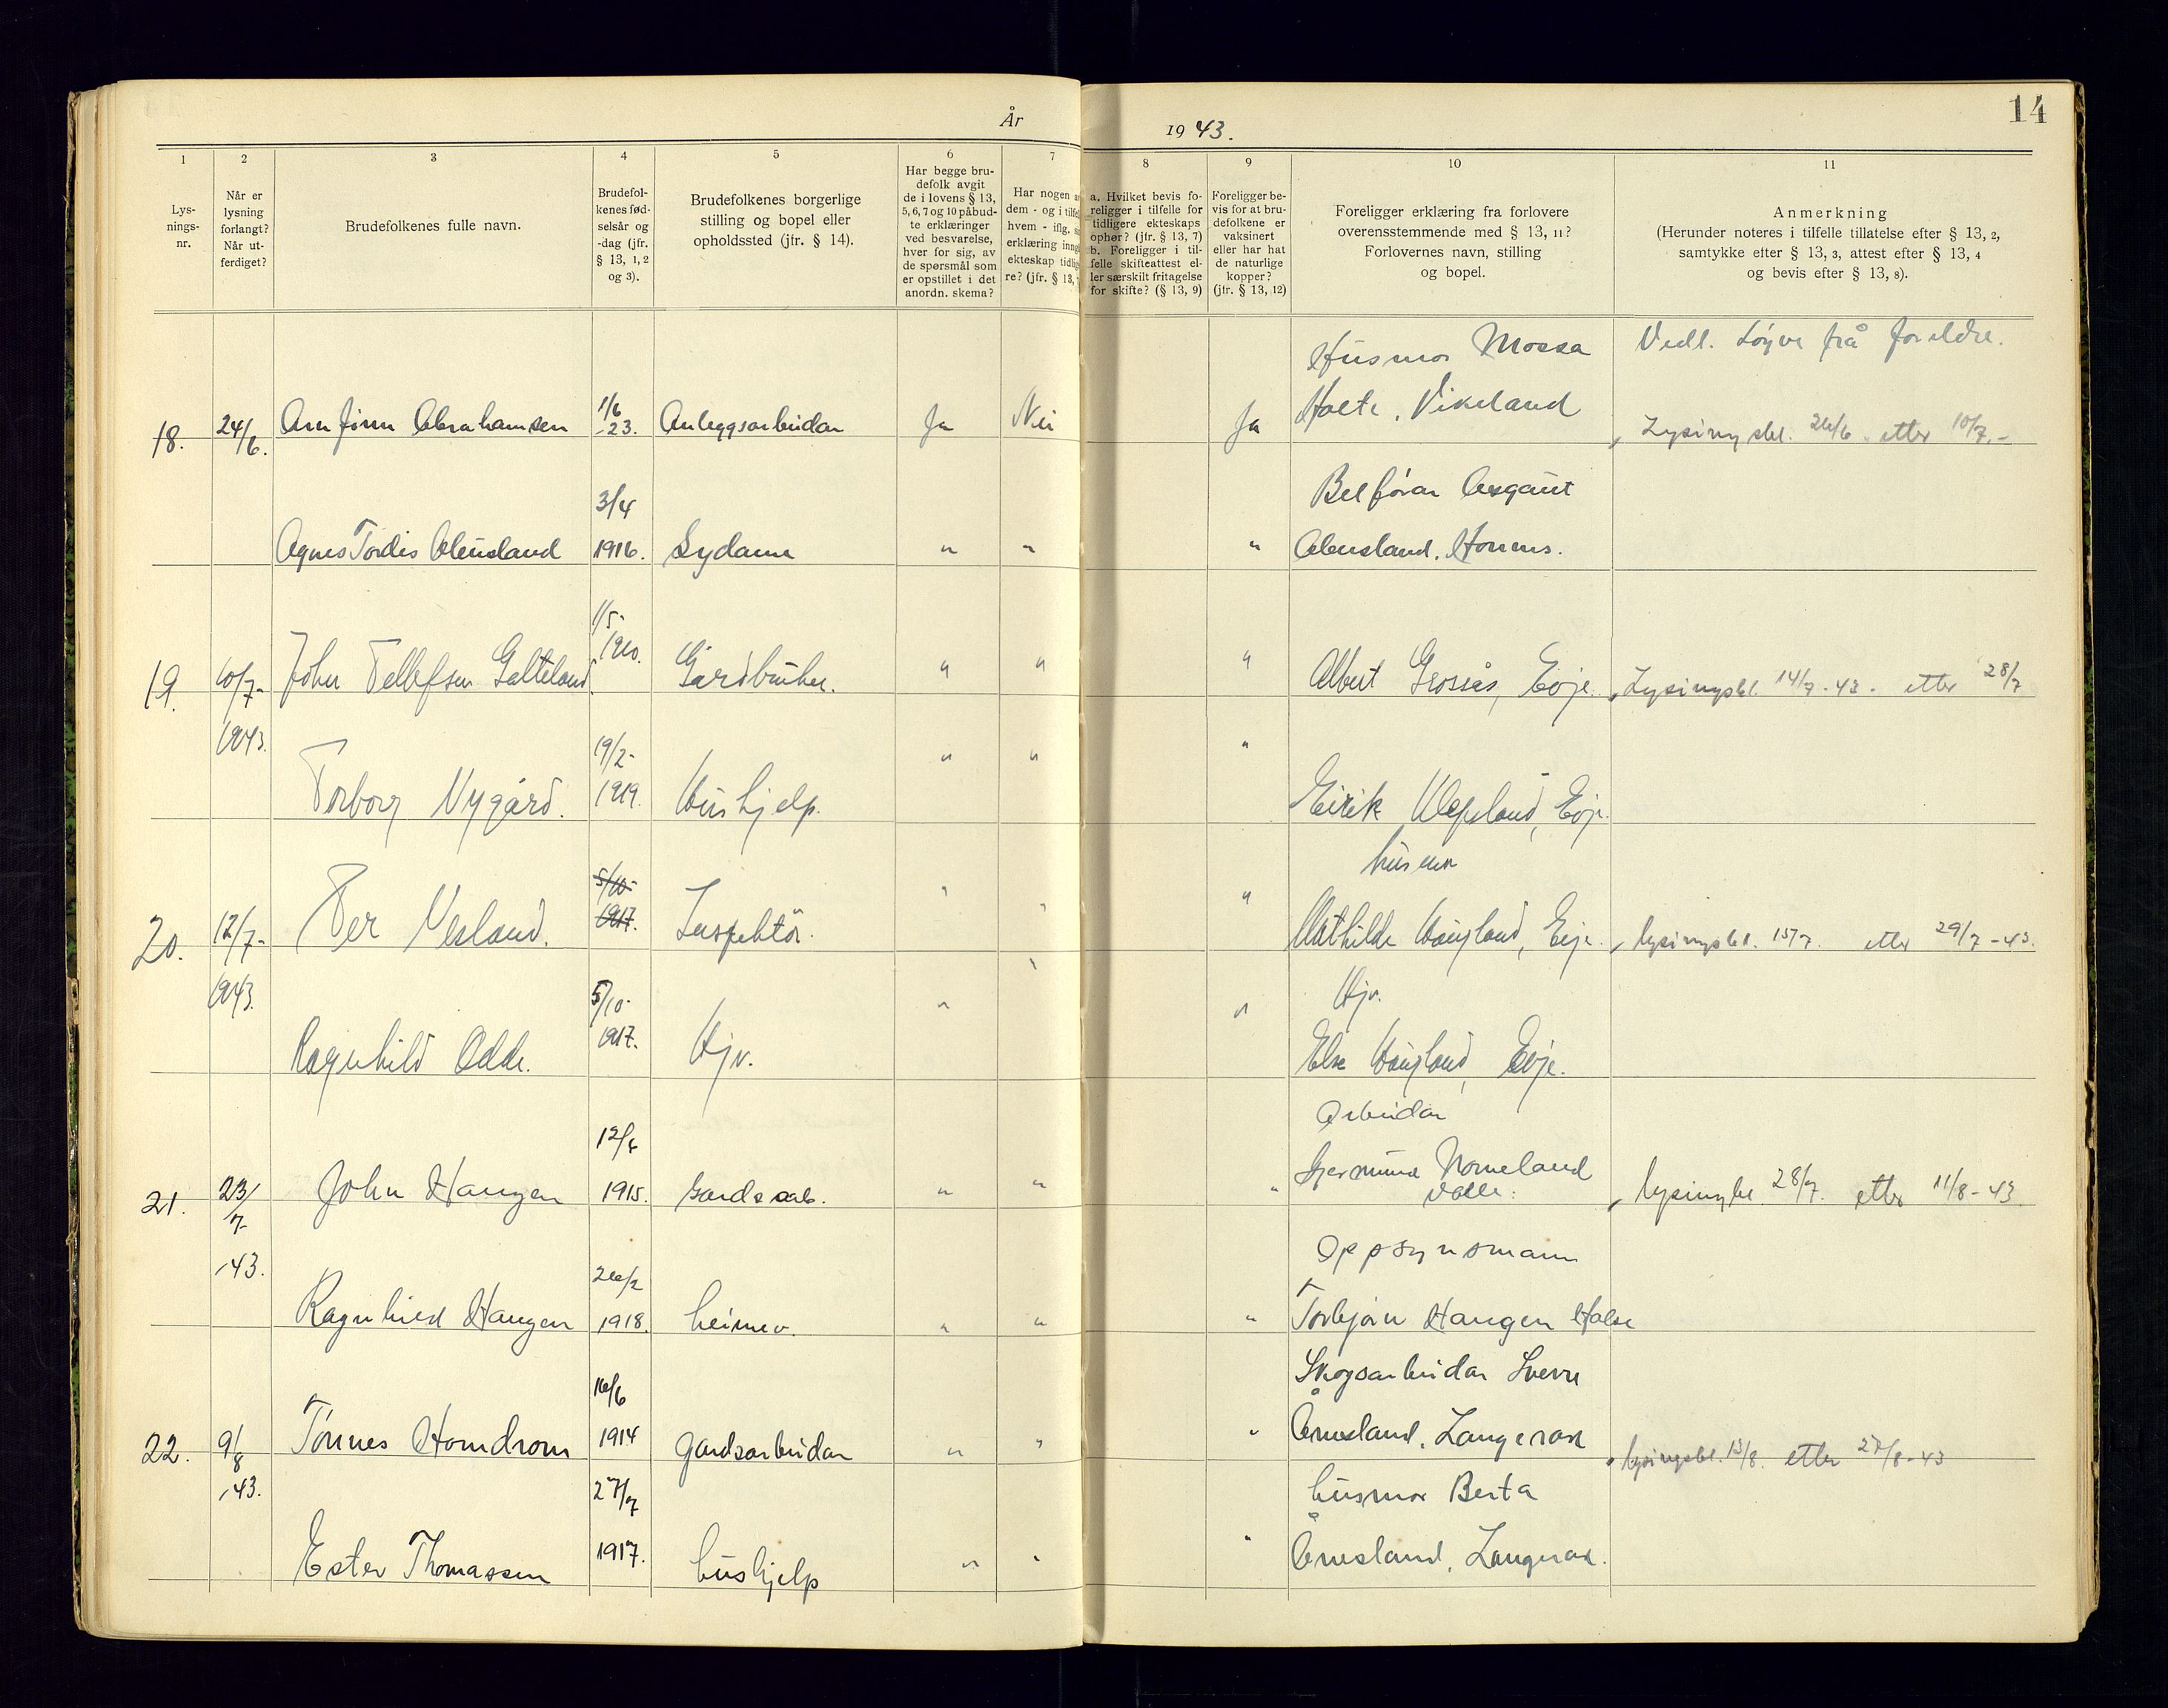 År 1943.
14
1 2 3 4 5 6 7 8 9 10 11
Lys-
nings-
nr.
Når er
lysning
forlangt?
Når ut-
ferdiget?
Brudefolkenes fulle navn.
Brudefol-
kenes fød-
selsår og
-dag (jfr.
§ 13, 1, 2
og 3).
Brudefolkenes borgerlige
stilling og bopel eller
opholdssted (jfr. § 14).
Har begge bru-
defolk avgit
de i lovens § 13,
5, 6, 7 og 10 påbud-
te erklæringer
ved besvarelse,
hver for sig, av
de spørsmål som
er opstillet i det
anordn. skema?
Har nogen
dem - og i tilfe
hvem - iflg.
erklæring inng
ekteskap tidlig
re? (jfr. § 13,
a. Hvilket bevis fo-
religger i tilfelle for
tidligere ekteskaps
ophør? (jfr. § 13, 7)
b. Foreligger i til-
felle skifteattest el-
ler særskilt fritagelse
for skifte? (§ 13, 9)
Foreligger be-
vis for at bru-
defolkene er
vaksinert
eller har hat
de naturlige
kopper?
(jfr. § 13, 12)
Foreligger erklæring fra forlovere
overensstemmende med § 13, 11?
Forlovernes navn, stilling
og bopel.
Anmerkning
(Herunder noteres i tilfelle tillatelse efter § 13, 2,
samtykke efter § 13, 3, attest efter § 13, 4
og bevis efter § 13, 8).
Husmor
Vedl. Løyve frå foreldre.
Vikeland
18. 24/6. Abrahamsen 1/6 -23. Anleggsarbeidar Ja Nei Ja
Lysingsbl. 26/6 etter 10/7.-
Agnes Tordis 3/4 1916. Sydame " " "
Hornnes.
19. 10/7- 1943. John Tellefsen Galteland. 1/5- 1920. Gardbruker. " " "
Albert Grosås, Evje.
Lysingsbl. 14/7-43. etter 28/7
Torborg Nygård. 19/2- 1919. Hushjelp. " " "
Eirik Klepsland, Evje.
husmor
20. 12/7- 1943. Per Vesland. 5/10- 1917. Inspektør. " " "
Mathilde Haugland, Evje.
lysingsbl. 15/7. etter 29/7-43.
Ragnhild Odde. 5/10- 1917. Hjv. " " "
Hjv.
Else Haugland, Evje.
Arbeidar
21. 23/7 -43. John Haugen 12/4 1915. Gardsarb. " " "
Gjermund Homeland
Valle.
lysingsbl. 28/7. etter 11/8-43.
Oppsynsmann
Ragnhild Haugen 26/2 1918. heimev. " " "
Torbjørn Haugen
Skogsarbeidar Sverre
22. 9/8 -43. Tønnes Homdrom 16/6 1914 gardsarbeidar " " "
Ånesland, Langerak
lysingsbl. 13/8. etter 27/8-43
husmor Berta
Ester Thomassen 27/7 1917. hushjelp " " "
Ånesland, Langerak.